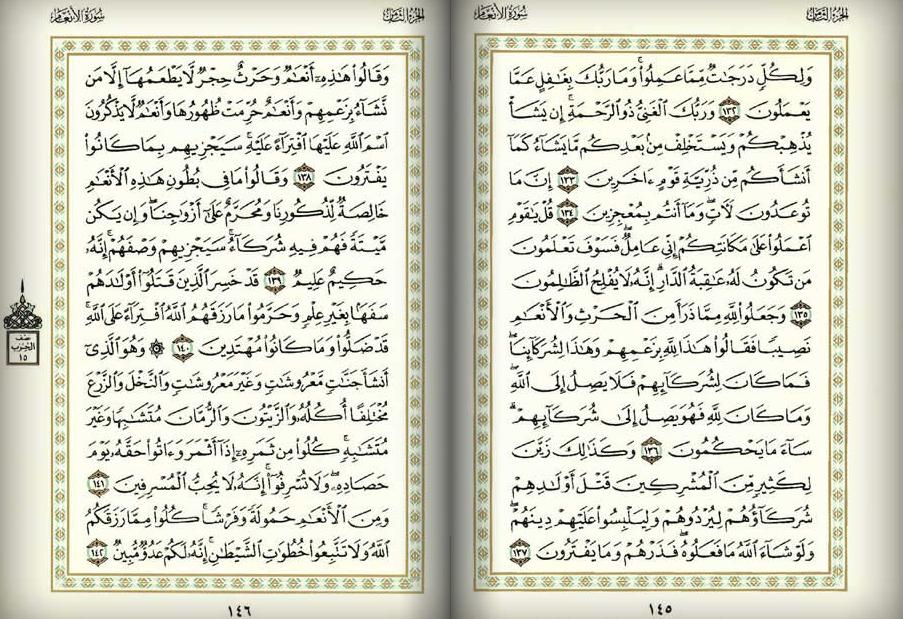 الجزء الثامن
سورة الأنعام
وَلِكُلٍّ دَرَجَٰتٌ مِّمَّا عَمِلُوا۟ وَمَا رَبُّكَ بِغَٰفِلٍ عَمَّا
يَعْمَلُونَ ١٣٢ وَرَبُّكَ ٱلْغَنِىُّ ذُو ٱلرَّحْمَةِ إِن يَشَأْ
يُذْهِبْكُمْ وَيَسْتَخْلِفْ مِنۢ بَعْدِكُم مَّا يَشَآءُ كَمَآ
أَنشَأَكُم مِّن ذُرِّيَّةِ قَوْمٍ ءَاخَرِينَ ١٣٣ إِنَّ مَا
تُوعَدُونَ لَءَاتٍ وَمَآ أَنتُم بِمُعْجِزِينَ ١٣٤ قُلْ يَٰقَوْمِ
ٱعْمَلُوا۟ عَلَىٰ مَكَانَتِكُمْ إِنِّى عَامِلٌ فَسَوْفَ تَعْلَمُونَ
مَن تَكُونُ لَهُۥ عَٰقِبَةُ ٱلدَّارِ إِنَّهُۥ لَا يُفْلِحُ ٱلظَّٰلِمُونَ
١٣٥ وَجَعَلُوا۟ لِلَّهِ مِمَّا ذَرَأَ مِنَ ٱلْحَرْثِ وَٱلْأَنْعَٰمِ
نَصِيبًا فَقَالُوا۟ هَٰذَا لِلَّهِ بِزَعْمِهِمْ وَهَٰذَا لِشُرَكَآئِنَا
فَمَا كَانَ لِشُرَكَآئِهِمْ فَلَا يَصِلُ إِلَى ٱللَّهِ
وَمَا كَانَ لِلَّهِ فَهُوَ يَصِلُ إِلَىٰ شُرَكَآئِهِمْ
سَآءَ مَا يَحْكُمُونَ ١٣٦ وَكَذَٰلِكَ زَيَّنَ
لِكَثِيرٍ مِّنَ ٱلْمُشْرِكِينَ قَتْلَ أَوْلَٰدِهِمْ
شُرَكَآؤُهُمْ لِيُرْدُوهُمْ وَلِيَلْبِسُوا۟ عَلَيْهِمْ دِينَهُمْ
وَلَوْ شَآءَ ٱللَّهُ مَا فَعَلُوهُ فَذَرْهُمْ وَمَا يَفْتَرُونَ ١٣٧
١٤٥
الجزء الثامن
سورة الأنعام
وَقَالُوا۟ هَٰذِهِۦٓ أَنْعَٰمٌ وَحَرْثٌ حِجْرٌ لَّا يَطْعَمُهَآ إِلَّا مَن
نَّشَآءُ بِزَعْمِهِمْ وَأَنْعَٰمٌ حُرِّمَتْ ظُهُورُهَا وَأَنْعَٰمٌ لَّا يَذْكُرُونَ
ٱسْمَ ٱللَّهِ عَلَيْهَا ٱفْتِرَآءً عَلَيْهِ سَيَجْزِيهِم بِمَا كَانُوا۟
يَفْتَرُونَ ١٣٨ وَقَالُوا۟ مَا فِى بُطُونِ هَٰذِهِ ٱلْأَنْعَٰمِ
خَالِصَةٌ لِّذُكُورِنَا وَمُحَرَّمٌ عَلَىٰٓ أَزْوَٰجِنَا وَإِن يَكُن
مَّيْتَةً فَهُمْ فِيهِ شُرَكَآءُ سَيَجْزِيهِمْ وَصْفَهُمْ إِنَّهُۥ
حَكِيمٌ عَلِيمٌ ١٣٩ قَدْ خَسِرَ ٱلَّذِينَ قَتَلُوٓا۟ أَوْلَٰدَهُمْ
سَفَهًۢا بِغَيْرِ عِلْمٍ وَحَرَّمُوا۟ مَا رَزَقَهُمُ ٱللَّهُ ٱفْتِرَآءً عَلَى ٱللَّهِ
قَدْ ضَلُّوا۟ وَمَا كَانُوا۟ مُهْتَدِينَ ١٤٠ ۞ وَهُوَ ٱلَّذِىٓ
أَنشَأَ جَنَّٰتٍ مَّعْرُوشَٰتٍ وَغَيْرَ مَعْرُوشَٰتٍ وَٱلنَّخْلَ وَٱلزَّرْعَ
مُخْتَلِفًا أُكُلُهُۥ وَٱلزَّيْتُونَ وَٱلرُّمَّانَ مُتَشَٰبِهًا وَغَيْرَ
مُتَشَٰبِهٍ كُلُوا۟ مِن ثَمَرِهِۦٓ إِذَآ أَثْمَرَ وَءَاتُوا۟ حَقَّهُۥ يَوْمَ
حَصَادِهِۦ وَلَا تُسْرِفُوٓا۟ إِنَّهُۥ لَا يُحِبُّ ٱلْمُسْرِفِينَ ١٤١
وَمِنَ ٱلْأَنْعَٰمِ حَمُولَةً وَفَرْشًا كُلُوا۟ مِمَّا رَزَقَكُمُ
ٱللَّهُ وَلَا تَتَّبِعُوا۟ خُطُوَٰتِ ٱلشَّيْطَٰنِ إِنَّهُۥ لَكُمْ عَدُوٌّ مُّبِينٌ ١٤٢
نصف
الحزب
١٥
١٤٦